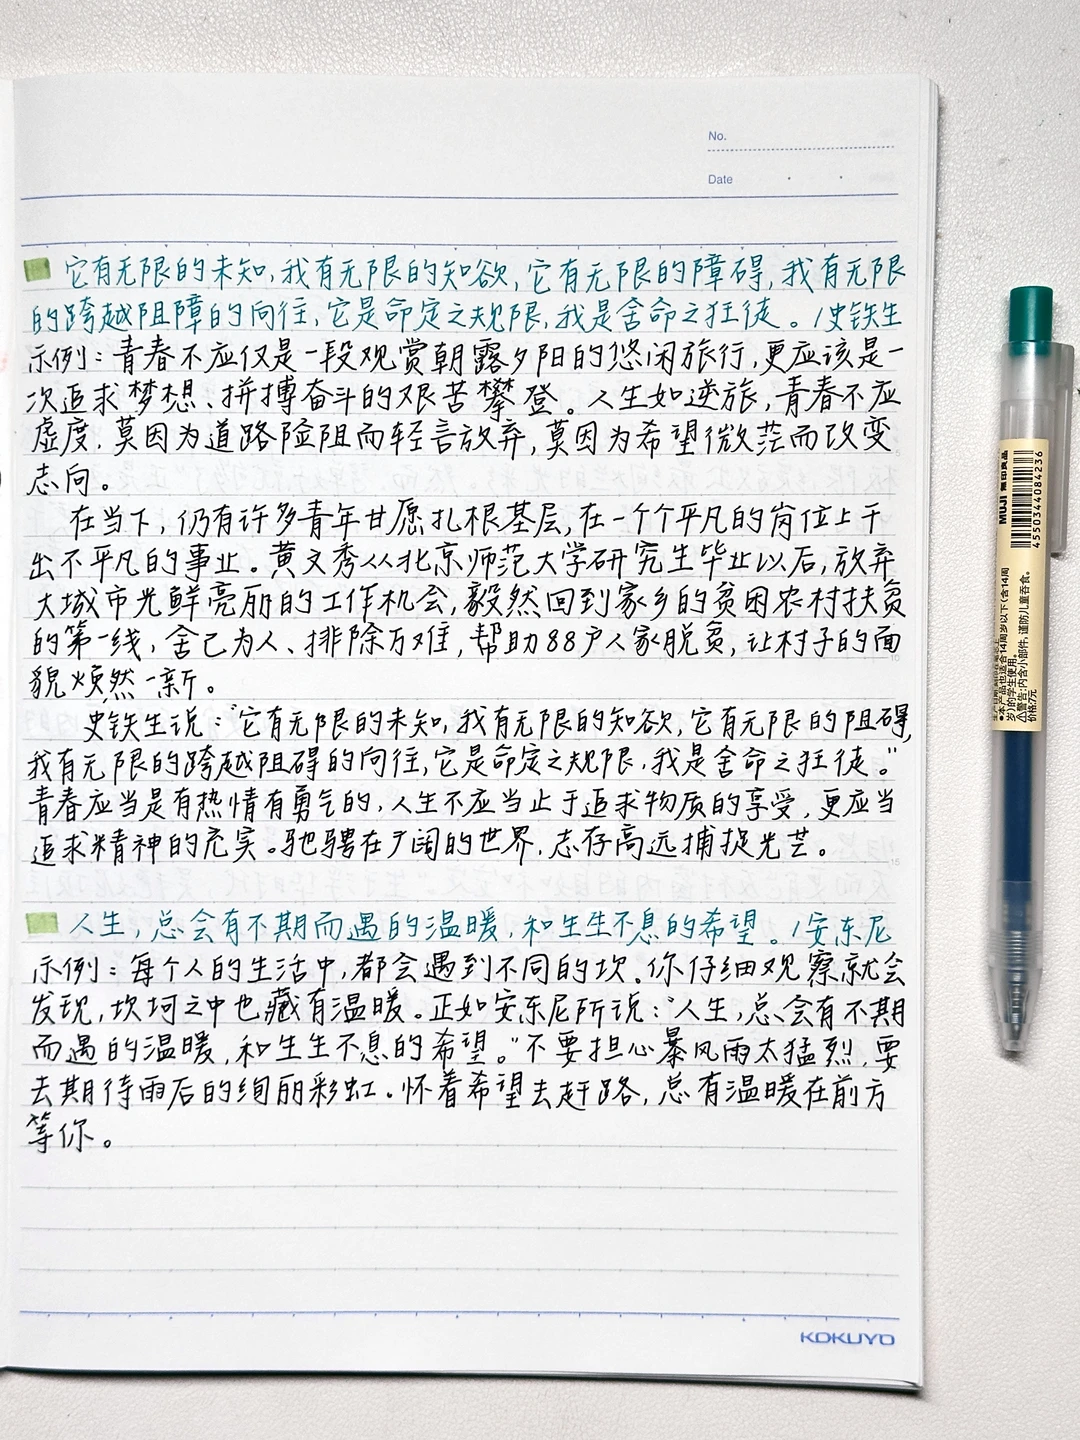 No.
Date
它有无限的未知,我有无限的知欲,它有无限的障碍,我有无限
的跨越阻障的向往,它是命定之规限,我是舍命之狂徒。/史铁生
示例：青春不应仅是一段观赏朝露夕阳的悠闲旅行,更应该是一
次追求梦想、拼搏奋斗的艰苦攀登。人生如逆旅,青春不应
虚度,莫因为道路险阻而轻言放弃,莫因为希望微茫而改变
志向。
在当下,仍有许多青年甘愿扎根基层,在一个个平凡的岗位上干
出不平凡的事业。黄文秀从北京师范大学研究生毕业以后,放弃
大城市光鲜亮丽的工作机会,毅然回到家乡的贫困农村扶贫
的第一线,舍己为人、排除万难,帮助88户人家脱贫,让村子的面
貌焕然一新。
史铁生说：“它有无限的未知,我有无限的知欲,它有无限的阻碍,
我有无限的跨越阻碍的向往,它是命定之规限,我是舍命之狂徒。”
青春应当是有热情有勇气的,人生不应当止于追求物质的享受,更应当
追求精神的充实。驰骋在广阔的世界,志存高远捕捉光芒。
人生,总会有不期而遇的温暖,和生生不息的希望。/安东尼
示例：每个人的生活中,都会遇到不同的坎,你仔细观察就会
发现,坎坷之中也藏有温暖。正如安东尼所说：“人生,总会有不期
而遇的温暖,和生生不息的希望。”不要担心暴风雨太猛烈,要
去期待雨后的绚丽彩虹。怀着希望去赶路,总有温暖在前方
等你。
KOKUYO
MUJI 無印良品
4550344084236
●本产品也适合14周岁以下(含14周
岁)的学生使用。
⚠警告:内含小部件,谨防儿童吞食。
价格:7元